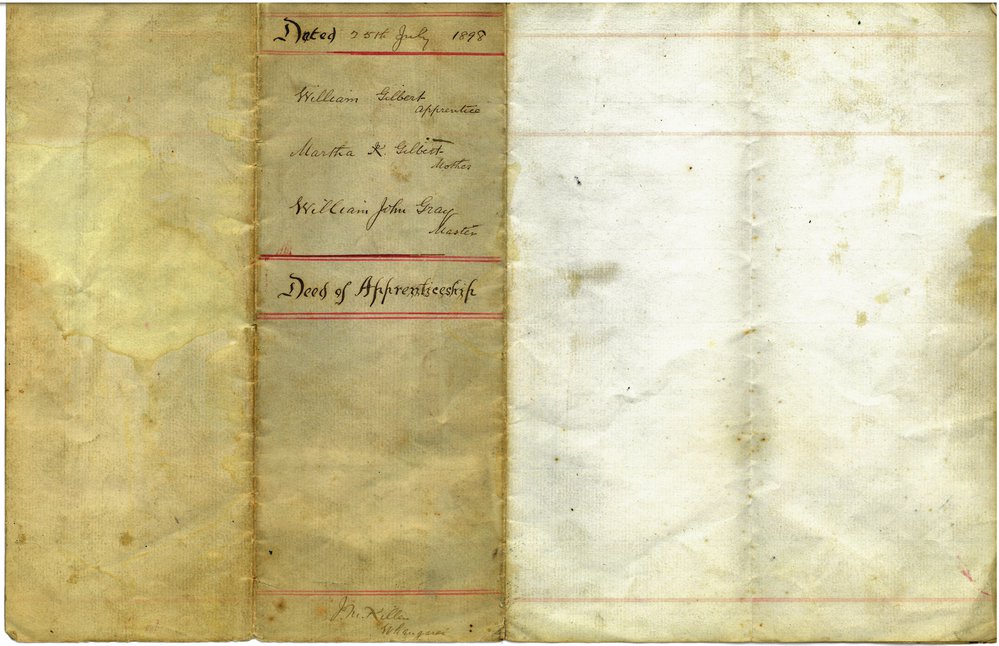 Dated 25th July 1898
William Gilbert
Apprentice
Martha K. Gilbert
Mother
William John Gray
Master
Deed of Apprenticeship
Whangarei